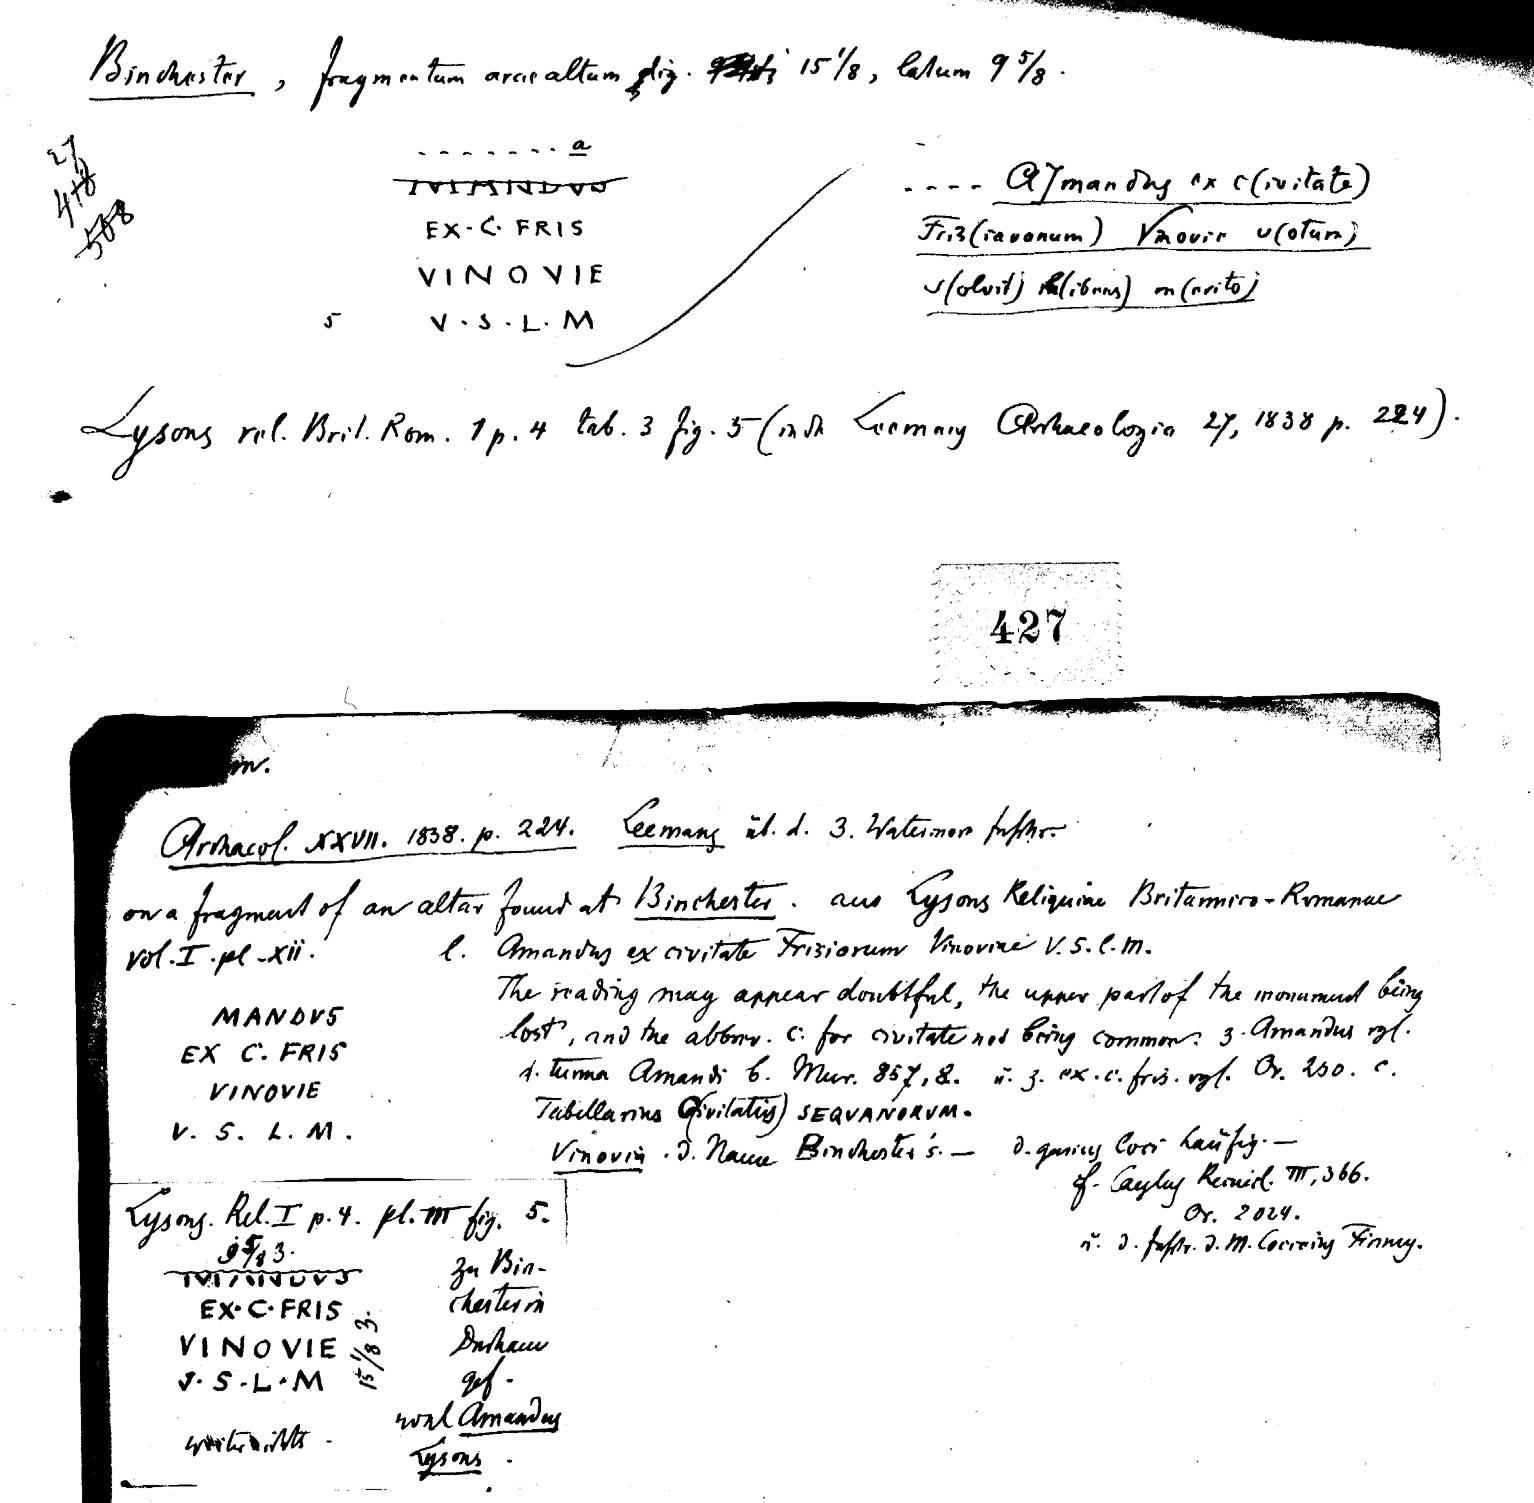 Binchester, fragmentum arae altum dig. 15 1/8, latum 9 5/8.
27
418
508
. . . . . . . a
MANDVS
EX · C · FRIS
VINOVIE
5 V · S · L · M
. . . . A]mandus ex c(ivitate)
Fris(iavonum) Vinovie v(otum)
s(olvit) l(ibens) m(erito)
Lysons rel. Brit. Rom. 1 p. 4 tab. 3 fig. 5 (inde Leemans Archaeologia 27, 1838 p. 224).
427
m.
Archaeol. XXVII. 1838. p. 224. Leemans üb. d. 3. Watermore Inschr.
on a fragment of an altar found at Binchester. aus Lysons Reliquiae Britannico-Romanae
vol. I. pl. xii.
l. Amandus ex civitate Frisiorum Vinoviae V. S. l. m.
The reading may appear doubtful, the upper part of the monument being
lost, and the abbrev. c. for civitate not being common. z. Amandus vgl.
d. turma Amandi b. Mur. 857, 8. u. z. ex. c. fris. vgl. Or. 250. c.
Tabellarius C(ivitatis) SEQVANORVM.
Vinovia. d. Name Binchester's. — d. genius loci häufig. —
cf. Caylus Recueil. III, 366.
Or. 2024.
u. d. Inschr. d. M. Cocceius Firmus.
MANDVS
EX C. FRIS
VINOVIE
V. S. L. M.
Lysons. Rel. I p. 4. pl. III fig. 5.
9 5/8 3.
MANDVS
EX · C · FRIS
VINOVIE
V · S · L · M
15 1/8 3.
weiter nichts.
zu Bin-
chester in
Durham
gef.
wol Amandus
Lysons.